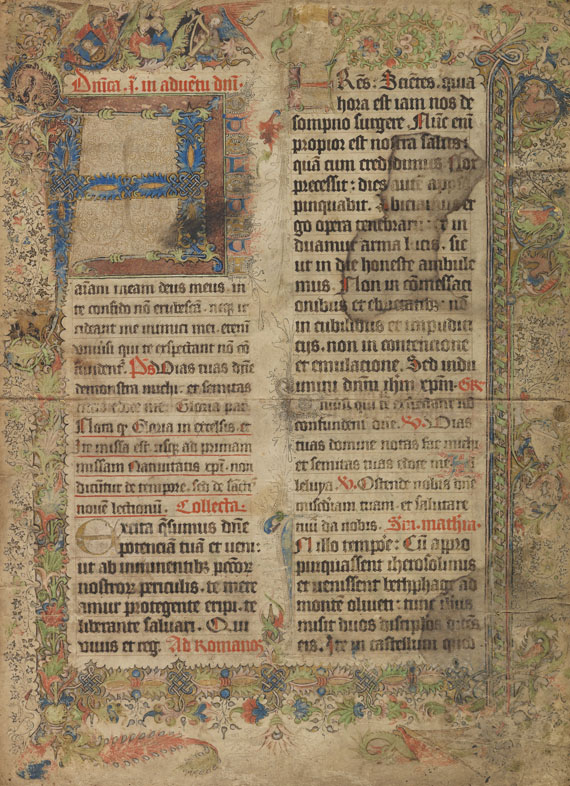 Dn̄ica . i . in aduētu dn̄i .
A
animam meam deus meus . in
te confido nō erubescā . neq; ir
rideant me inimici mei . etenī
vniūsi qui te exspectant nō cō
fundent᷑ . Ps̄ Uias tuas dn̄e
demonstra michi . et semitas
Gloria pat̄
Nota q Gloria in excelsis . et
Ite missa est . usq; ad primam
missam Natiuitatis xp̄i . non
dicunt᷑ de tempore . sed de
nouē lectionū . Collecta .
Excita q̄sumus dn̄e
potenciā tuā et veni :
ut ab iminentib; pc̄tor̄
nostror̄ periculis . te mere
amur protegente eripi . te
liberante saluari . Q ui
viuis et reḡ . Ad Romanos
FRēs : Scientes . quia
hora est iam nos de
sompno surgere . Nunc enī
propior est nostra salus :
quā cum credidimus . Nox
precessit : dies autē appro
pinquabit . Abiciamus er
go opera tenebrarū : et in
duamur arma lucis . sic
ut in die honeste ambule
mus . Non in cōmessaci
onibus et ebrietatib; . nō
in cubilibus et impudici
cijs . non in contencione
et emulacione . Sed indu
imini dn̄m ih̄m xp̄m . Gr̄
niūsi qui te exspectant nō
confundent᷑ dn̄e . V Uias
tuas domine notas fac michi
et semitas tuas edoce me Al
leluya . V Ostende nobis dn̄e
misc̄diam tuam . et salutare
tuū da nobis . Sc̄dm mathm̄ .
IN illo tempore : Cū appro
pinquasset iherosolimis
et venissent bethphage ad
montē oliueti : tunc ihūs
misit duos discipl̄os
eis . Ite in castellum quod